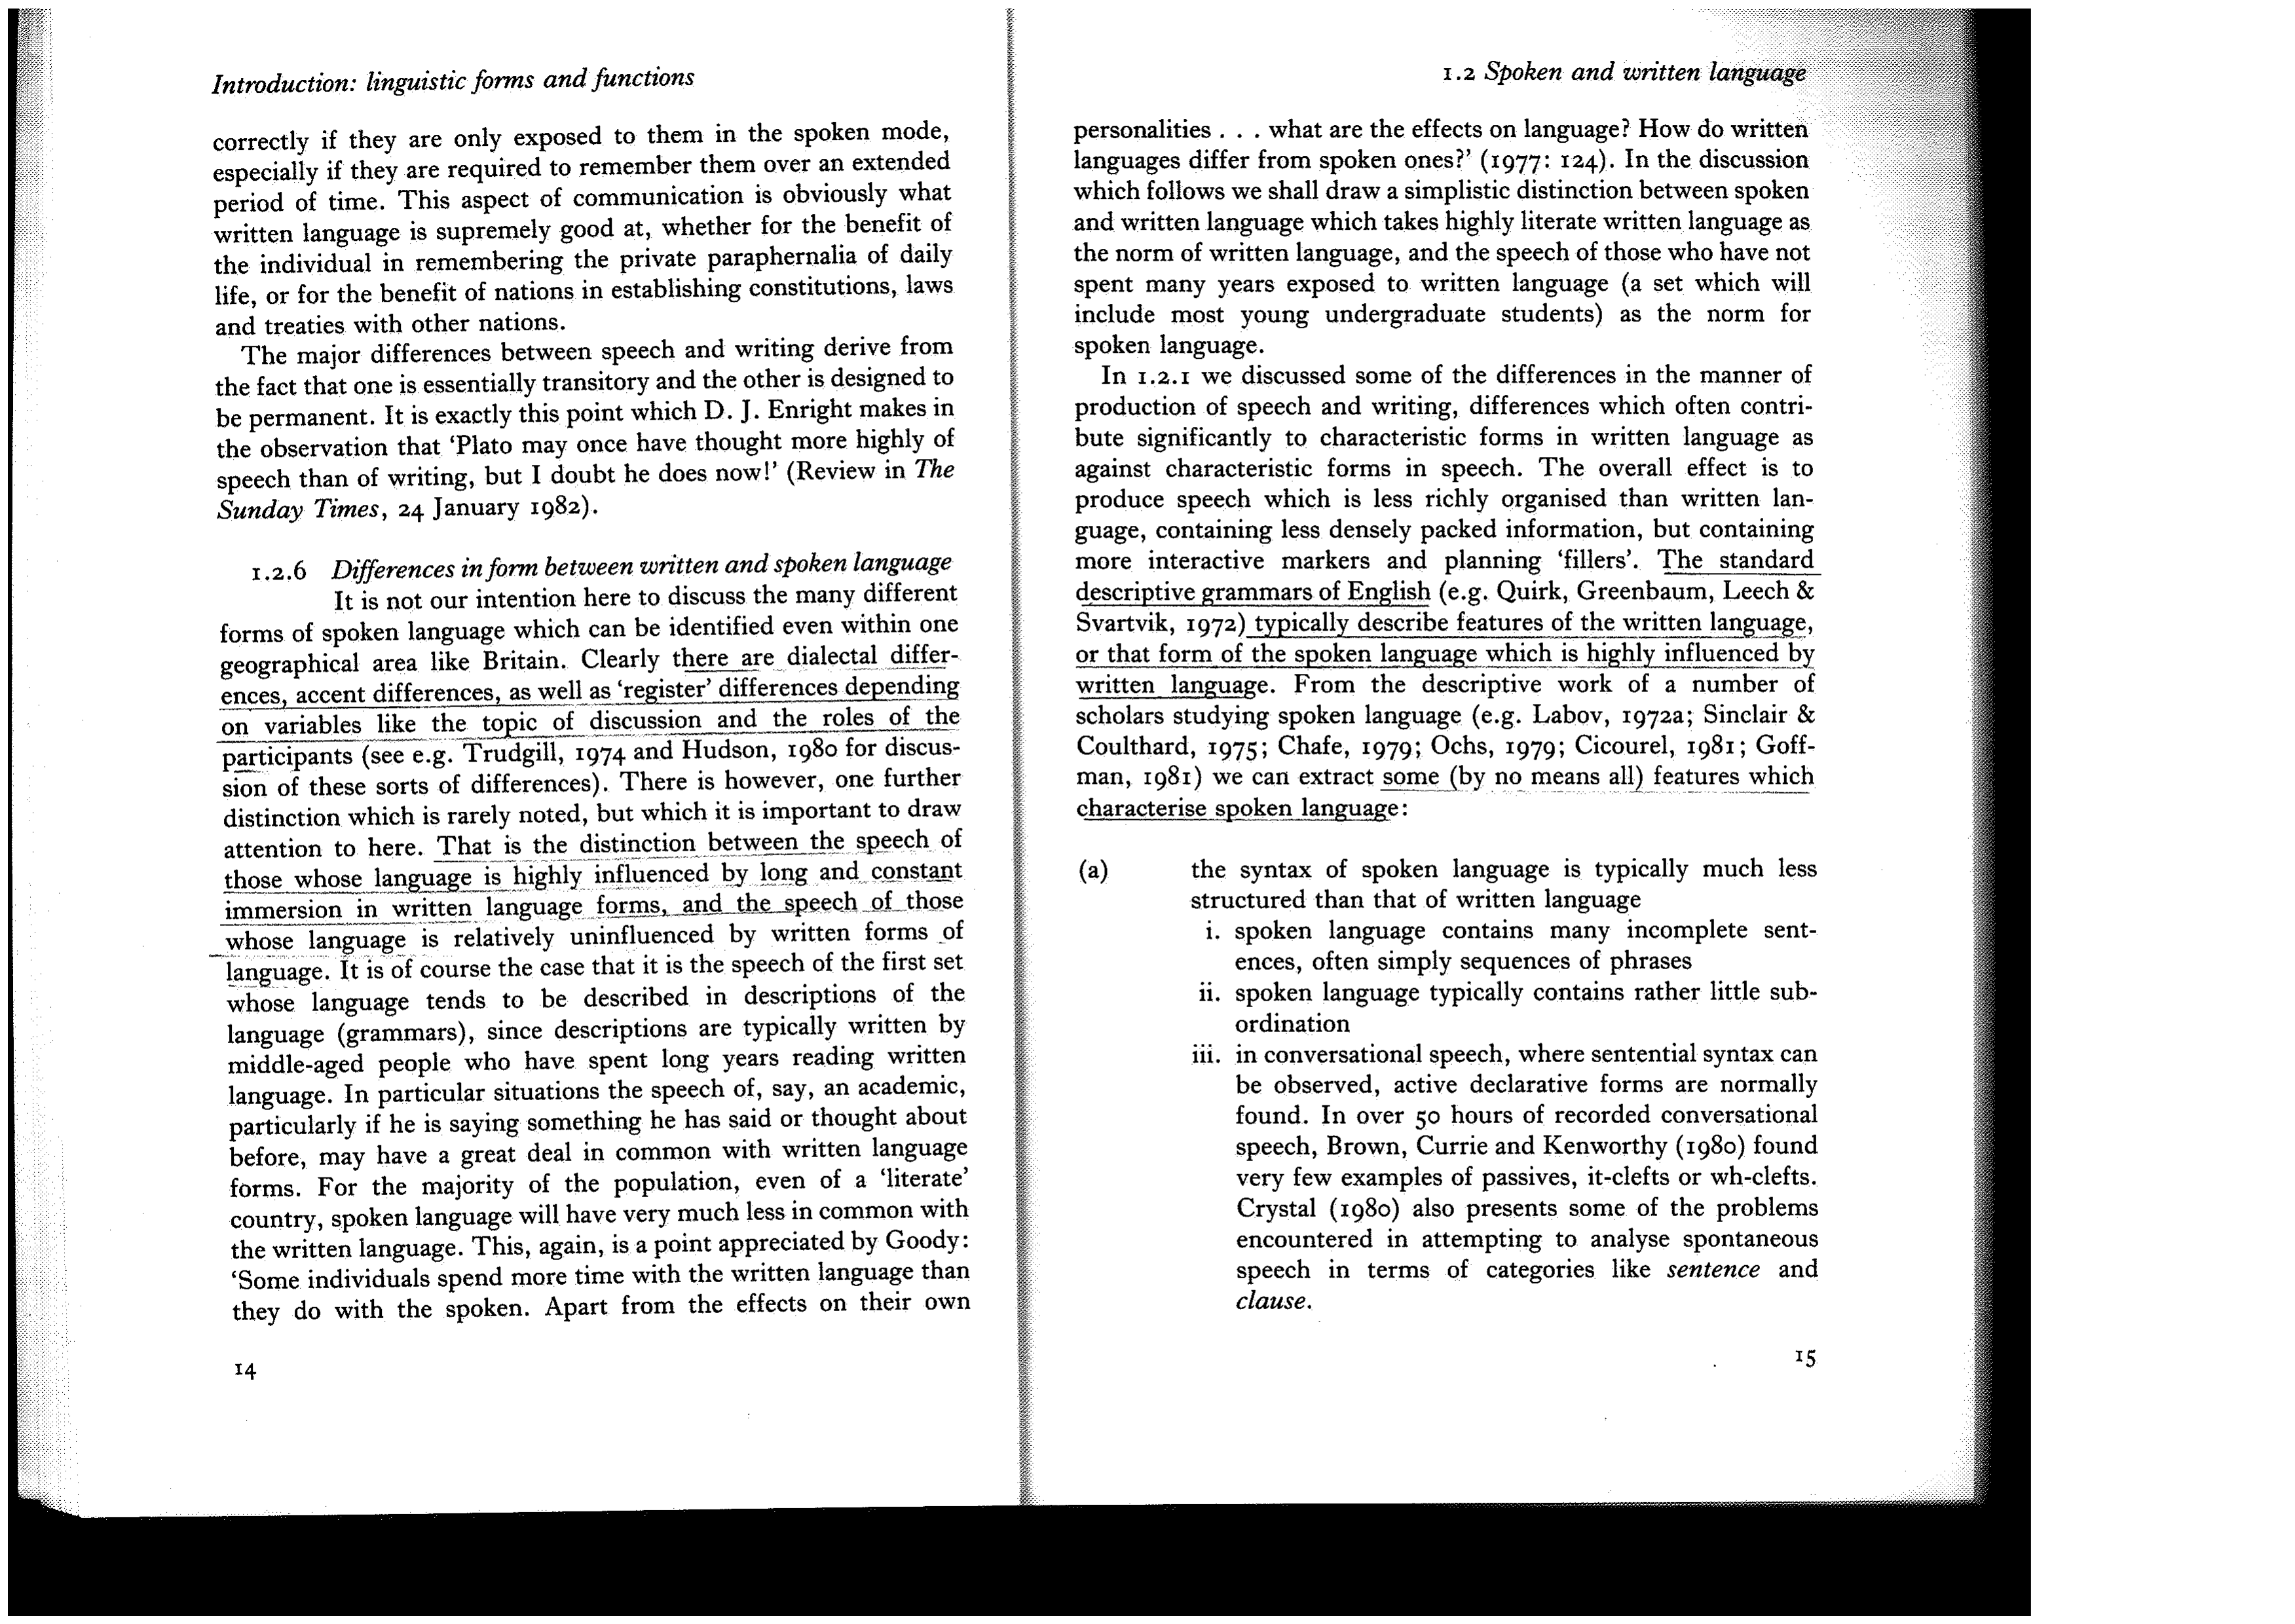 Introduction: linguistic forms and functions
correctly if they are only exposed to them in the spoken mode,
especially if they are required to remember them over an extended
period of time. This aspect of communication is obviously what
written language is supremely good at, whether for the benefit of
the individual in remembering the private paraphernalia of daily
life, or for the benefit of nations in establishing constitutions, laws
and treaties with other nations.
The major differences between speech and writing derive from
the fact that one is essentially transitory and the other is designed to
be permanent. It is exactly this point which D. J. Enright makes in
the observation that ‘Plato may once have thought more highly of
speech than of writing, but I doubt he does now!’ (Review in The
Sunday Times, 24 January 1982).
1.2.6 Differences in form between written and spoken language
It is not our intention here to discuss the many different
forms of spoken language which can be identified even within one
geographical area like Britain. Clearly there are dialectal differ-
ences, accent differences, as well as ‘register’ differences depending
on variables like the topic of discussion and the roles of the
participants (see e.g. Trudgill, 1974 and Hudson, 1980 for discus-
sion of these sorts of differences). There is however, one further
distinction which is rarely noted, but which it is important to draw
attention to here. That is the distinction between the speech of
those whose language is highly influenced by long and constant
immersion in written language forms, and the speech of those
whose language is relatively uninfluenced by written forms of
language. It is of course the case that it is the speech of the first set
whose language tends to be described in descriptions of the
language (grammars), since descriptions are typically written by
middle-aged people who have spent long years reading written
language. In particular situations the speech of, say, an academic,
particularly if he is saying something he has said or thought about
before, may have a great deal in common with written language
forms. For the majority of the population, even of a ‘literate’
country, spoken language will have very much less in common with
the written language. This, again, is a point appreciated by Goody:
‘Some individuals spend more time with the written language than
they do with the spoken. Apart from the effects on their own
14
1.2 Spoken and written language
personalities . . . what are the effects on language? How do written
languages differ from spoken ones?’ (1977: 124). In the discussion
which follows we shall draw a simplistic distinction between spoken
and written language which takes highly literate written language as
the norm of written language, and the speech of those who have not
spent many years exposed to written language (a set which will
include most young undergraduate students) as the norm for
spoken language.
In 1.2.1 we discussed some of the differences in the manner of
production of speech and writing, differences which often contri-
bute significantly to characteristic forms in written language as
against characteristic forms in speech. The overall effect is to
produce speech which is less richly organised than written lan-
guage, containing less densely packed information, but containing
more interactive markers and planning ‘fillers’. The standard
descriptive grammars of English (e.g. Quirk, Greenbaum, Leech &
Svartvik, 1972) typically describe features of the written language,
or that form of the spoken language which is highly influenced by
written language. From the descriptive work of a number of
scholars studying spoken language (e.g. Labov, 1972a; Sinclair &
Coulthard, 1975; Chafe, 1979; Ochs, 1979; Cicourel, 1981; Goff-
man, 1981) we can extract some (by no means all) features which
characterise spoken language:
(a) the syntax of spoken language is typically much less
structured than that of written language
i. spoken language contains many incomplete sent-
ences, often simply sequences of phrases
ii. spoken language typically contains rather little sub-
ordination
iii. in conversational speech, where sentential syntax can
be observed, active declarative forms are normally
found. In over 50 hours of recorded conversational
speech, Brown, Currie and Kenworthy (1980) found
very few examples of passives, it-clefts or wh-clefts.
Crystal (1980) also presents some of the problems
encountered in attempting to analyse spontaneous
speech in terms of categories like sentence and
clause.
15